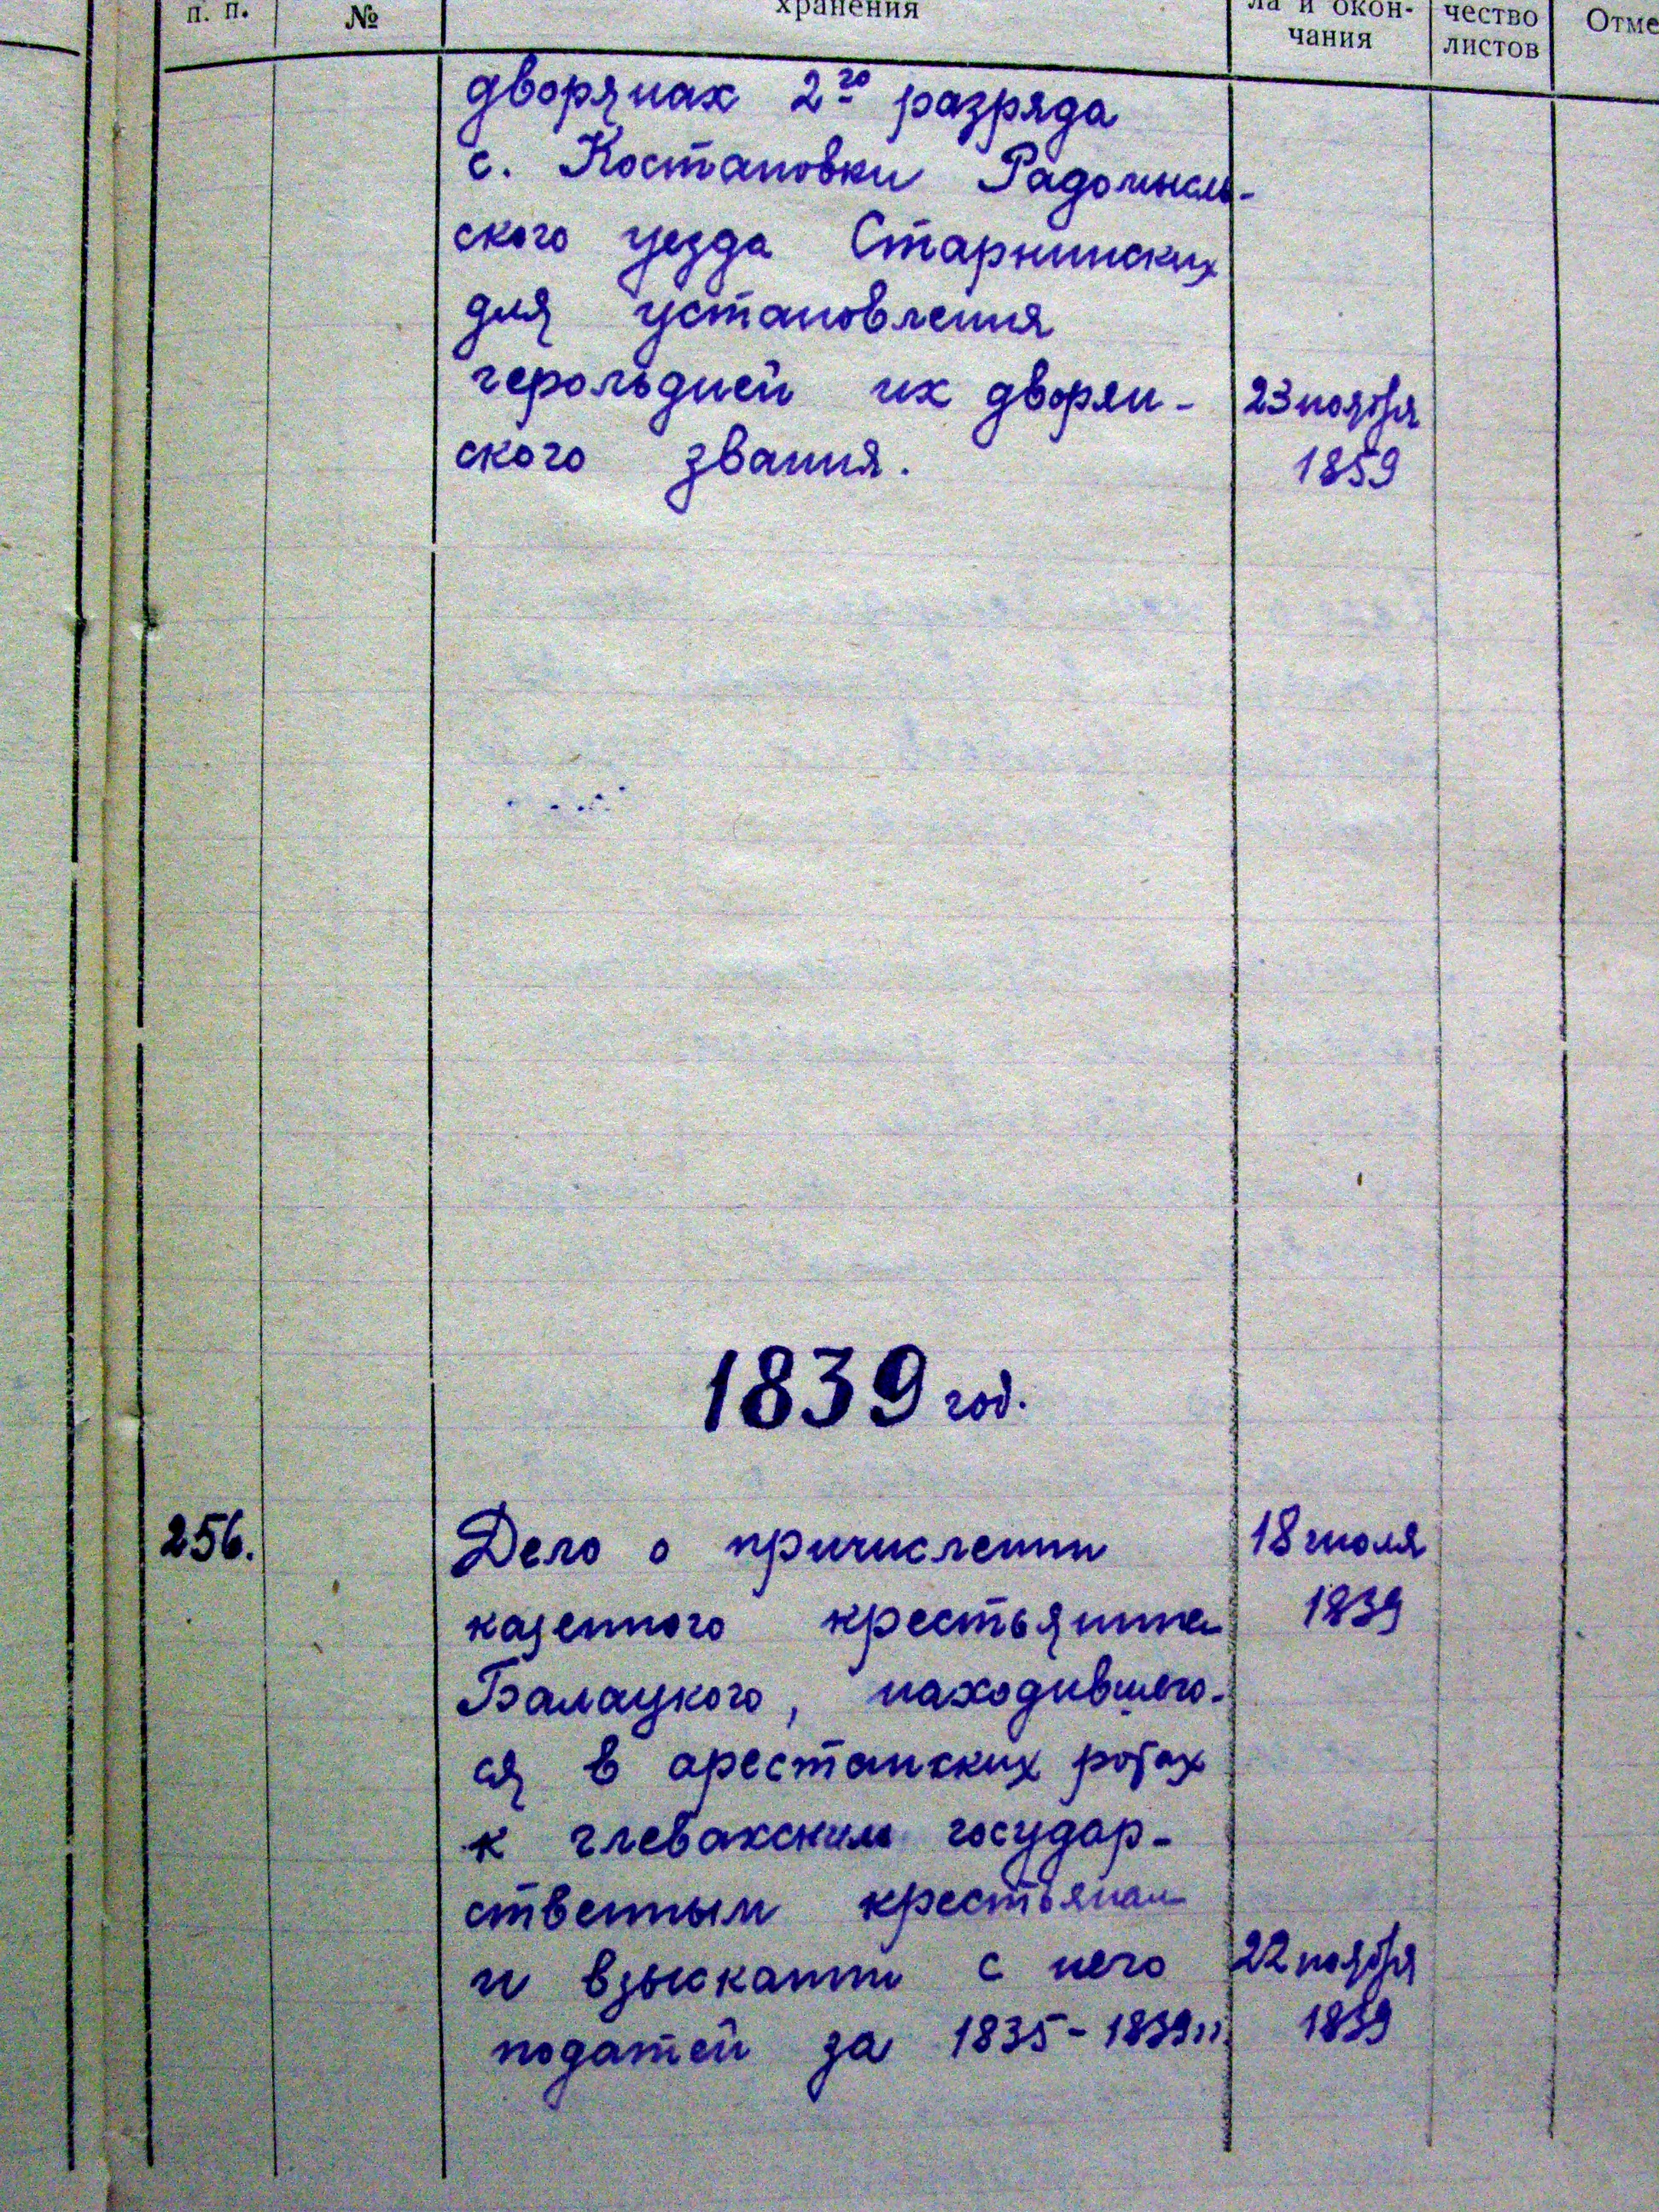 п. п.
№
хранения
ла и окон-
чания
чество
листов
Отме
дворянах 2го разряда
с. Костановки Радомысль-
ского уезда Старнинских
для установления
герольдией их дворян-
ского звания.
23 ноября
1859
1839 год.
256.
Дело о причислении
казенного крестьянина
Балацкого, находившего-
ся в арестанских ротах
к глевахским государ-
ственным крестьянам
и взыскании с него
податей за 1835-1839гг.
18 июля
1839
22 ноября
1839